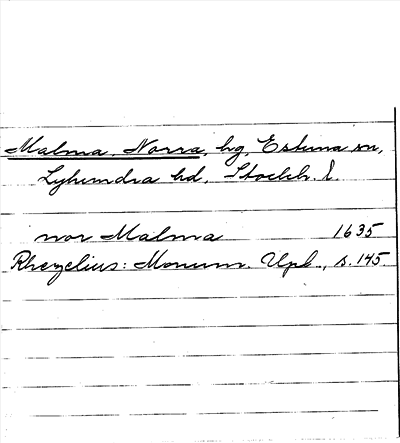 Malma, Norra, hg, Estuna sn,
Lyhundra hd, Stockh. l.
nor Malma 1635
Rhezelius: Monum. Upl., s. 145.